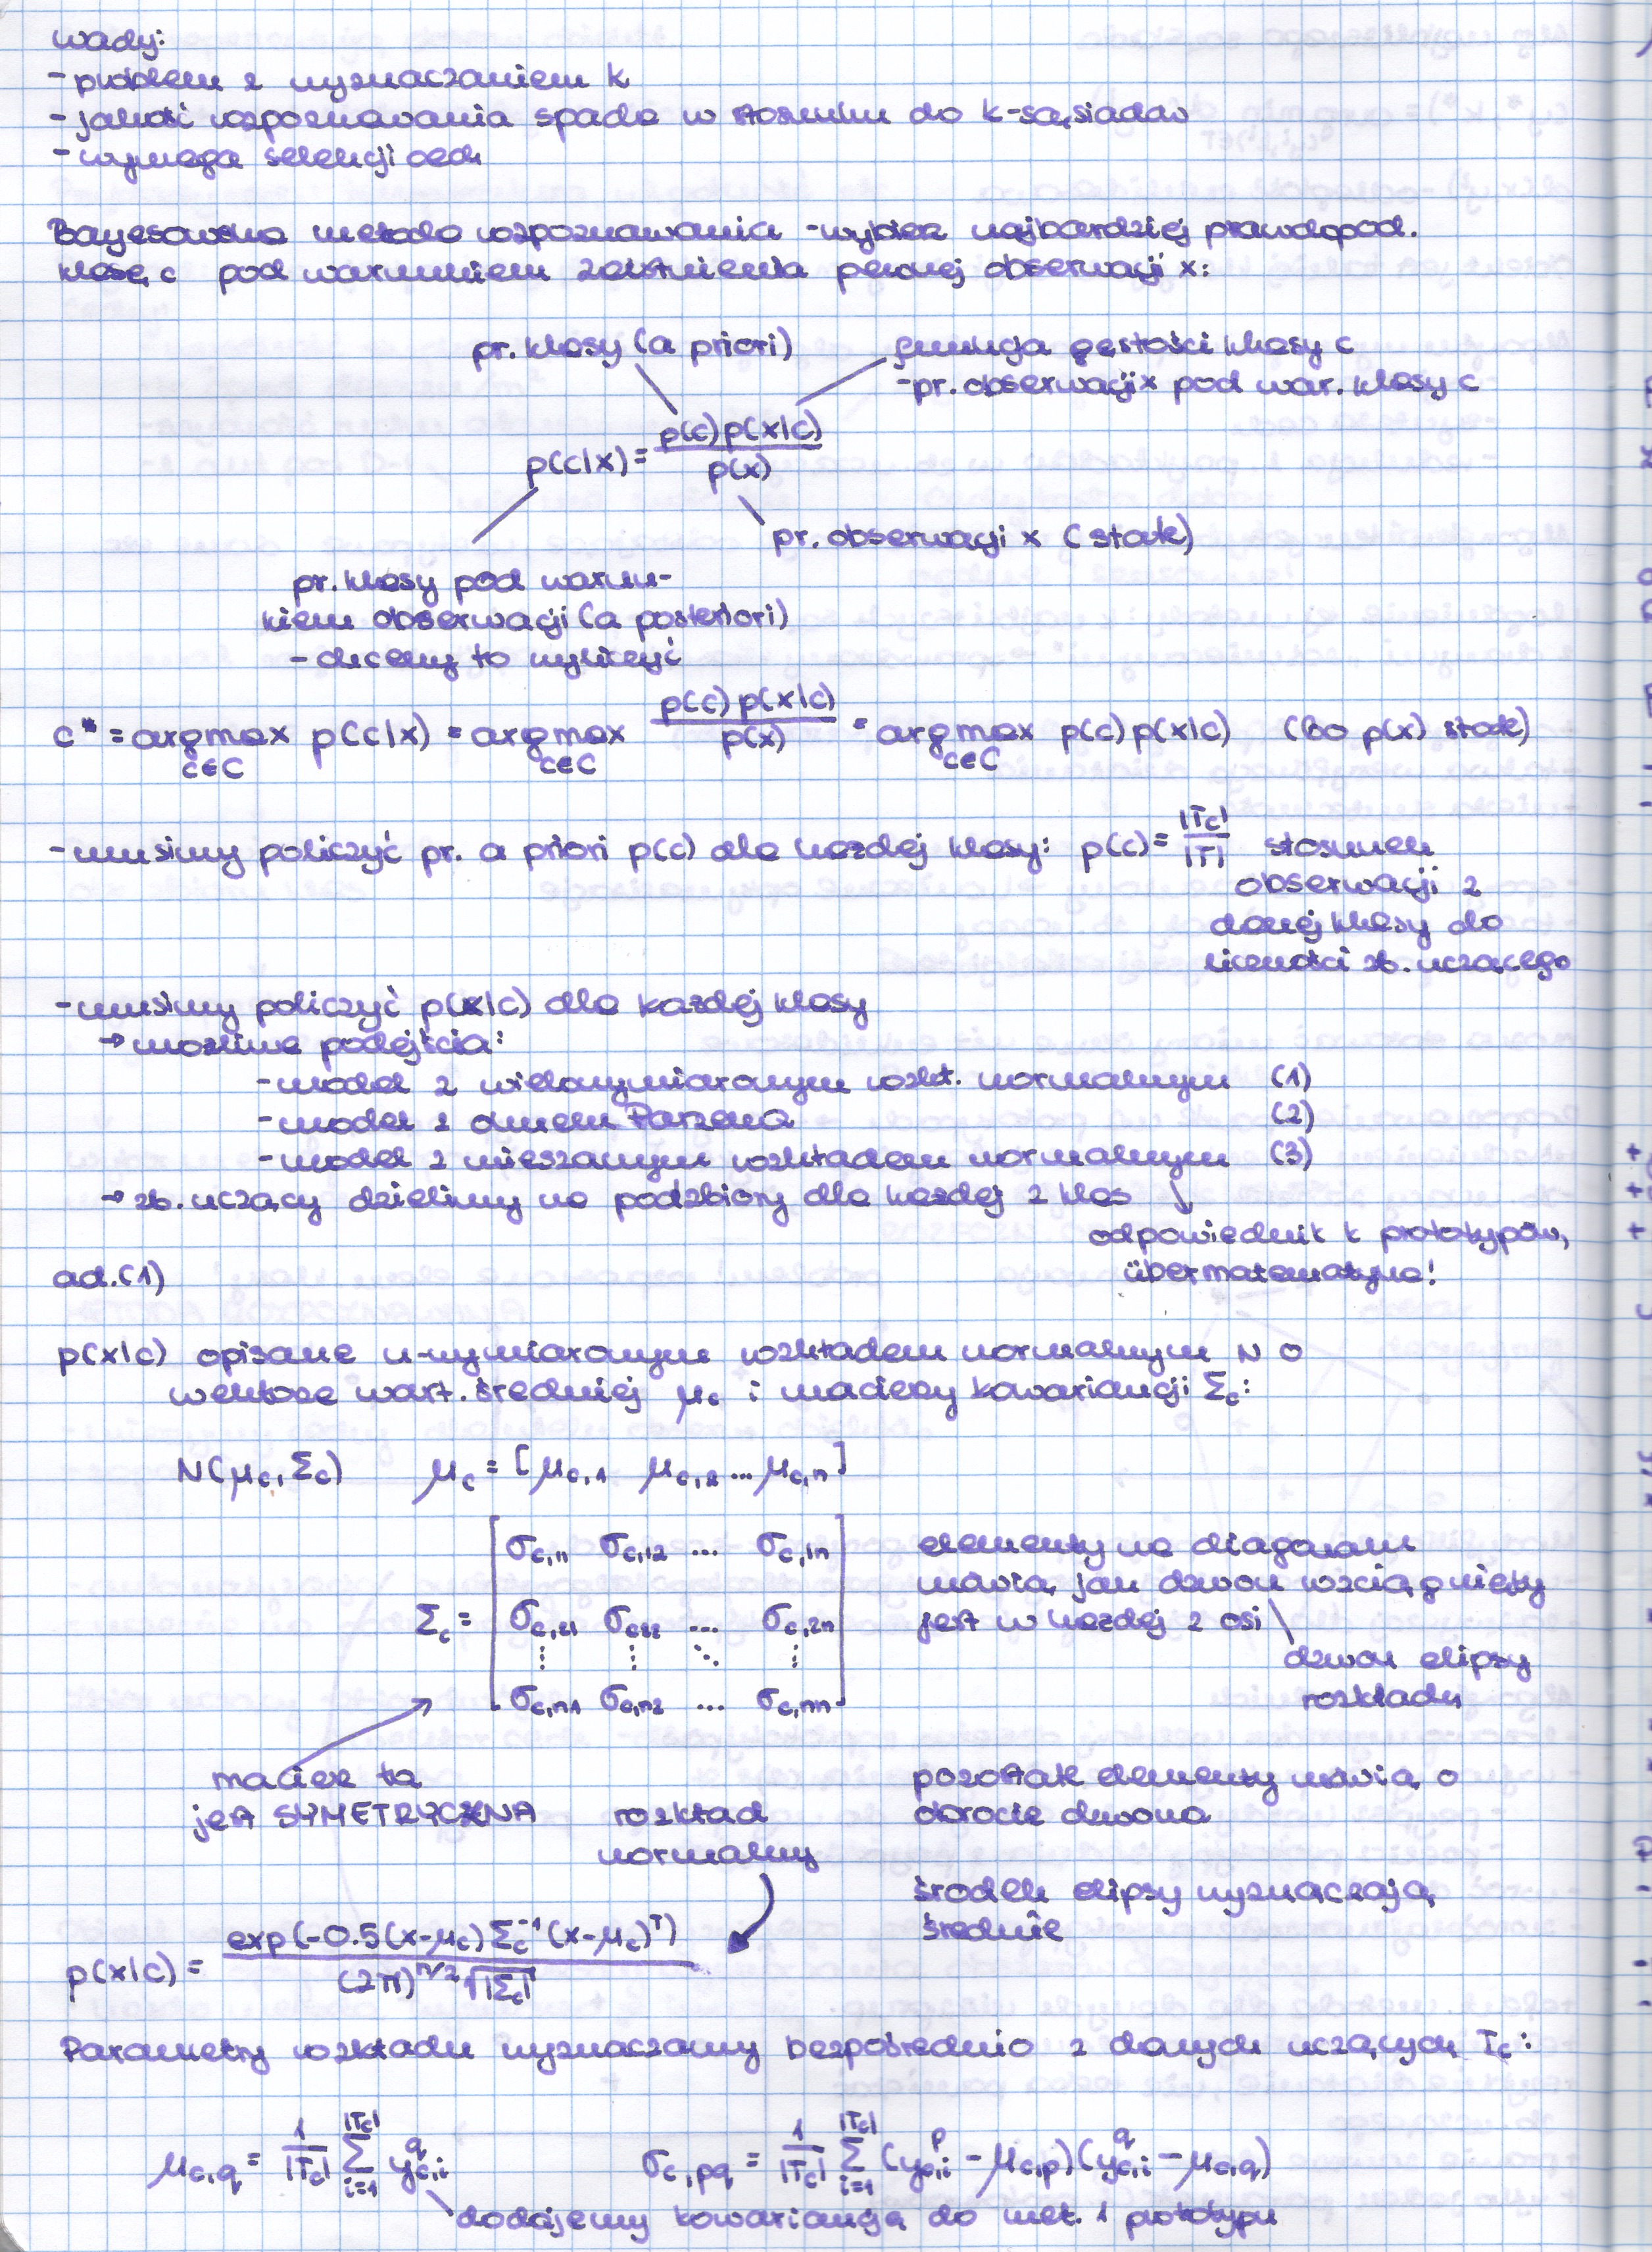 wady:
- problem z wyznaczaniem k
- jakość rozpoznawania spada w stosunku do k-sąsiadów
- wymaga selekcji cech
Bayesowska metoda rozpoznawania - wybierz najbardziej prawdopod.
klasę c pod warunkiem zaistnienia pewnej obserwacji x:
pr. klasy (a priori)
funkcja gęstości klasy c
- pr. obserwacji x pod war. klasy c
p(c|x) = p(c) p(x|c) / p(x)
pr. obserwacji x (stałe)
pr. klasy pod warun-
kiem obserwacji (a posteriori)
- chcemy to wyliczyć
c* = argmax c∈C p(c|x) = argmax c∈C p(c) p(x|c) / p(x) = argmax c∈C p(c) p(x|c) (bo p(x) stałe)
- musimy policzyć pr. a priori p(c) dla każdej klasy: p(c) = |Tc| / |T| stosunek
obserwacji z
danej klasy do
liczności zb. uczącego
- musimy policzyć p(x|c) dla każdej klasy
→ możliwe podejścia:
- model z wielowymiarowym rozkł. normalnym (1)
- model z oknem Parzena (2)
- model z mieszanym rozkładem normalnym (3)
→ zb. uczący dzielimy na podzbiory dla każdej z klas
odpowiednik k prototypów,
übermatematyczna!
ad.(1)
p(x|c) opisane n-wymiarowym rozkładem normalnym N o
wektorze wart. średniej μc i macierzy kowariancji Σc:
N(μc, Σc) μc = [μc,1 μc,2 ... μc,n]
Σc = [σc,11 σc,12 ... σc,1n
σc,21 σc22 ... σc,2n
⋮ ⋮ ⋱ ⋮
σc,n1 σc,n2 ... σc,nn]
elementy na diagonali
mówią, jak dzwon rozciągnięty
jest w każdej z osi
dzwon elipsy
rozkładu
macierz ta
jest SYMETRYCZNA
rozkład
normalny
pozostałe elementy mówią o
obrocie dzwona
środek elipsy wyznaczają
średnie
p(x|c) = exp(-0.5(x-μc) Σc⁻¹ (x-μc)ᵀ) / (2π)^n/2 √|Σc|
Parametry rozkładu wyznaczamy bezpośrednio z danych uczących Tc:
μc,q = 1/|Tc| Σ i=1 |Tc| y^q c,i σc,pq = 1/|Tc| Σ i=1 |Tc| (y^p c,i - μc,p)(y^q c,i - μc,q)
dodajemy kowariancję do met. 1 prototypu